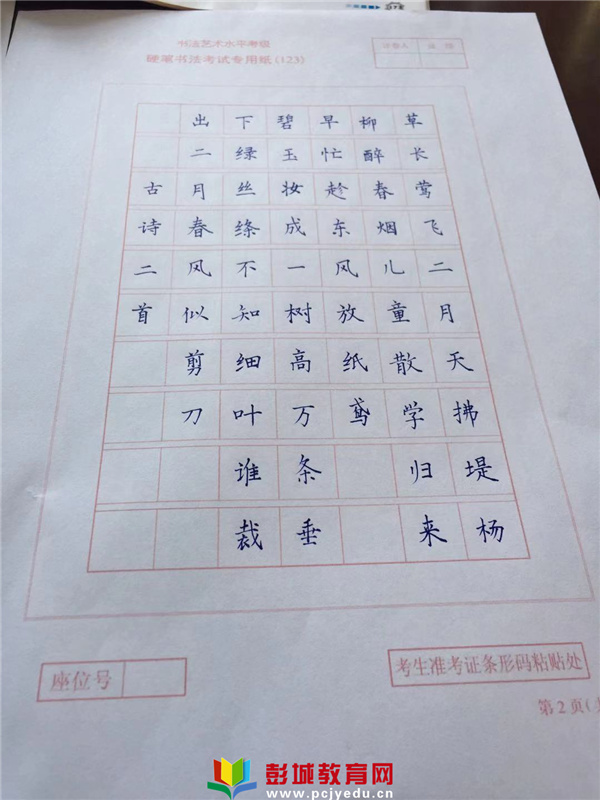 书法艺术水平考级
硬笔书法考试专用纸(123)
草长莺飞二月天拂堤杨
柳醉春烟儿童散学归来
早忙趁东风放纸鸢
碧玉妆成一树高万条垂
下绿丝绦不知细叶谁裁
出二月春风似剪刀
古诗二首
座位号
考生准考证条形码粘贴处
第2页(
彭城教育网
www.pcjyedu.cn